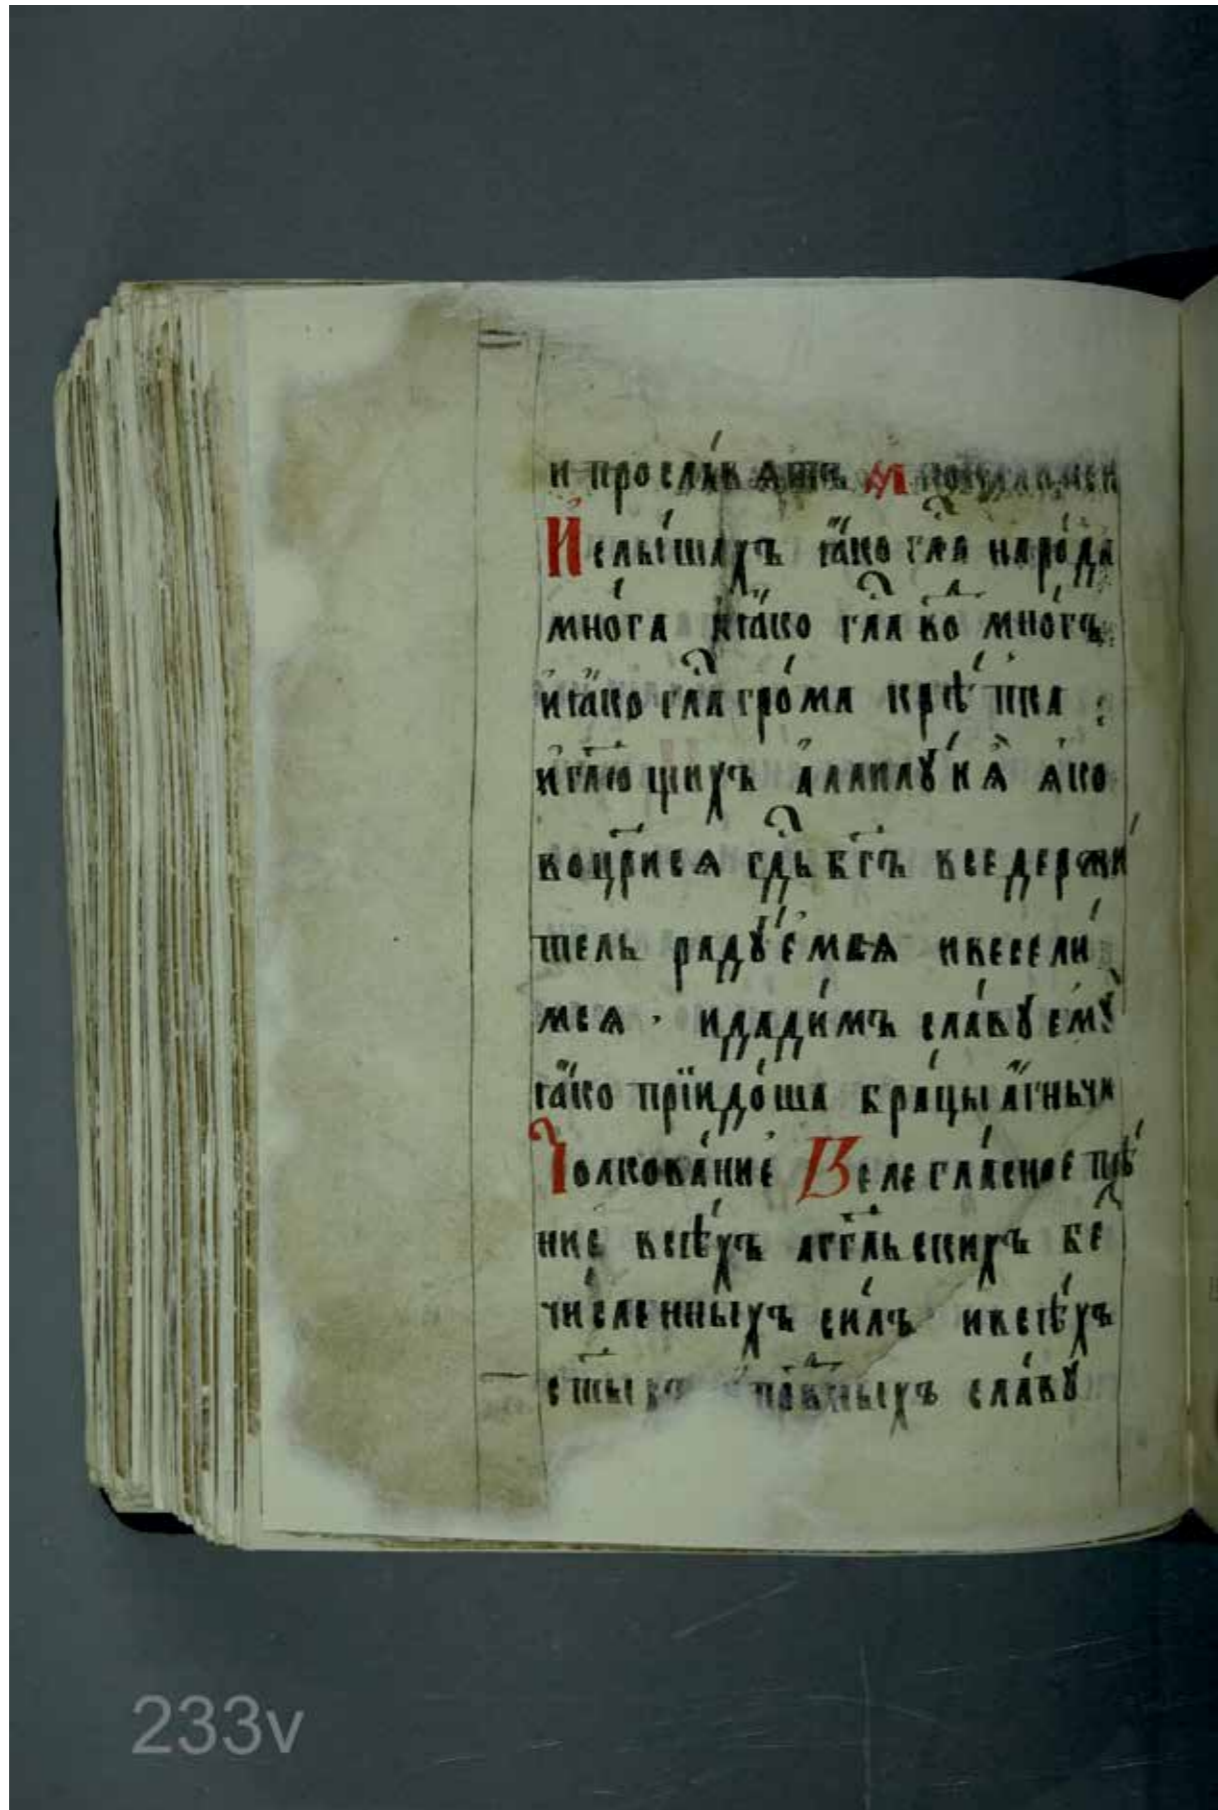 и прославѧтъ
И слы́шахъ ꙗ҆́ко гла҇ наро́да
мно́га и҆ꙗ҆́ко гла҇ во҆дъ мно́гъ
и҆ꙗ҆́ко гла҇ гро́ма крѣ́пка :
и҆гл҃ющихъ а҆ллилꙋ́иꙗ ꙗко
воцр҃исѧ гд҇ь бг҃ъ вседержи́
тель радꙋ́емсѧ ивесели́
мсѧ · идади́мъ сла́вꙋ ем́ꙋ
ꙗ҆́ко прїидо́ша бра́цы а҆́гньчи
Толкова́ние Велегла́сное пѣ́
ние всѣ́хъ агг҃льскихъ бе҇
чи́сленныхъ си́лъ ивсѣ́хъ
ст҃ыхъ пра́вⷣныхъ сла́вꙋ
233v